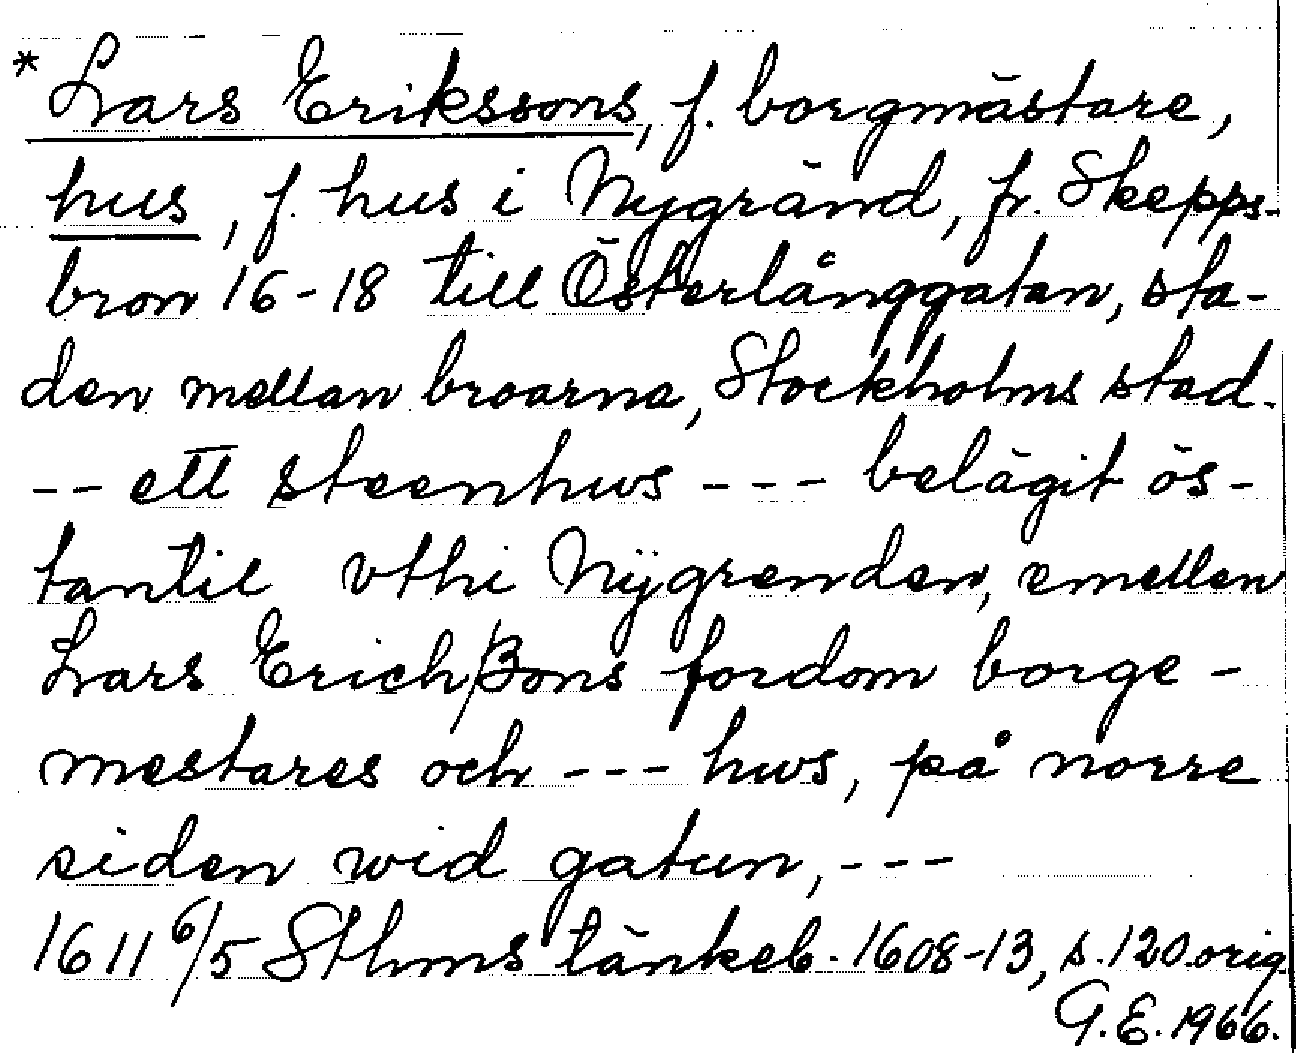 * Lars Erikssons, f. borgmästare,
hus, f. hus i Nygränd, fr. Skepps-
bron 16-18 till Österlånggatan, sta-
den mellan broarna, Stockholms stad.
-- ett steenhws --- belägit ös-
tantil vthi Nÿgrenden, emellen
Lars Erichßons fordom borge-
mestares och --- hws, på norre
siden wid gatun, ---
1611 6/5 Sthms tänkeb. 1608-13, s. 120 orig.
G.E. 1966.